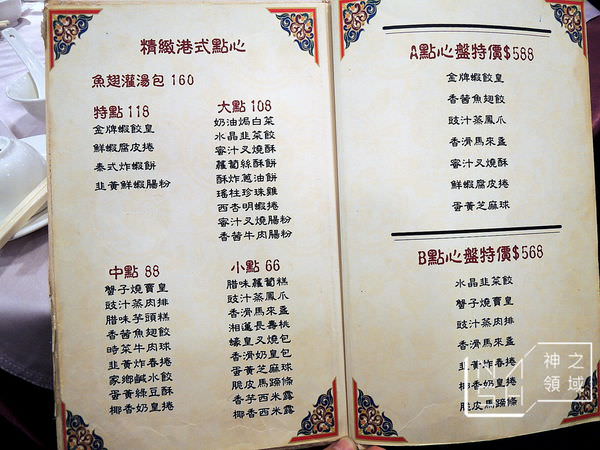 精緻港式點心
魚翅灌湯包 160
特點 118
金牌蝦餃皇
鮮蝦腐皮捲
泰式炸蝦餅
韭黃鮮蝦腸粉
大點 108
奶油焗白菜
水晶韭菜餃
蜜汁叉燒酥
蘿蔔絲酥餅
酥炸蔥油餅
瑤柱珍珠雞
西杏明蝦捲
蜜汁叉燒腸粉
香茜牛肉腸粉
中點 88
蟹子燒賣皇
豉汁蒸肉排
腊味芋頭糕
香茜魚翅餃
時菜牛肉球
韭黃炸春捲
家鄉鹹水餃
蛋黃綠豆酥
椰香奶皇捲
小點 66
腊味蘿蔔糕
豉汁蒸鳳爪
香滑馬來盏
湘蓮長壽桃
蠔皇叉燒包
香滑奶皇包
蛋黃芝麻球
脆皮馬蹄條
香芋西米露
椰香西米露
A點心盤特價$588
金牌蝦餃皇
香茜魚翅餃
豉汁蒸鳳爪
香滑馬來盏
蜜汁叉燒酥
鮮蝦腐皮捲
蛋黃芝麻球
B點心盤特價$568
水晶韭菜餃
蟹子燒賣皇
豉汁蒸肉排
香滑馬來盏
韭黃炸春捲
椰香奶皇捲
脆皮馬蹄條
神之
領域